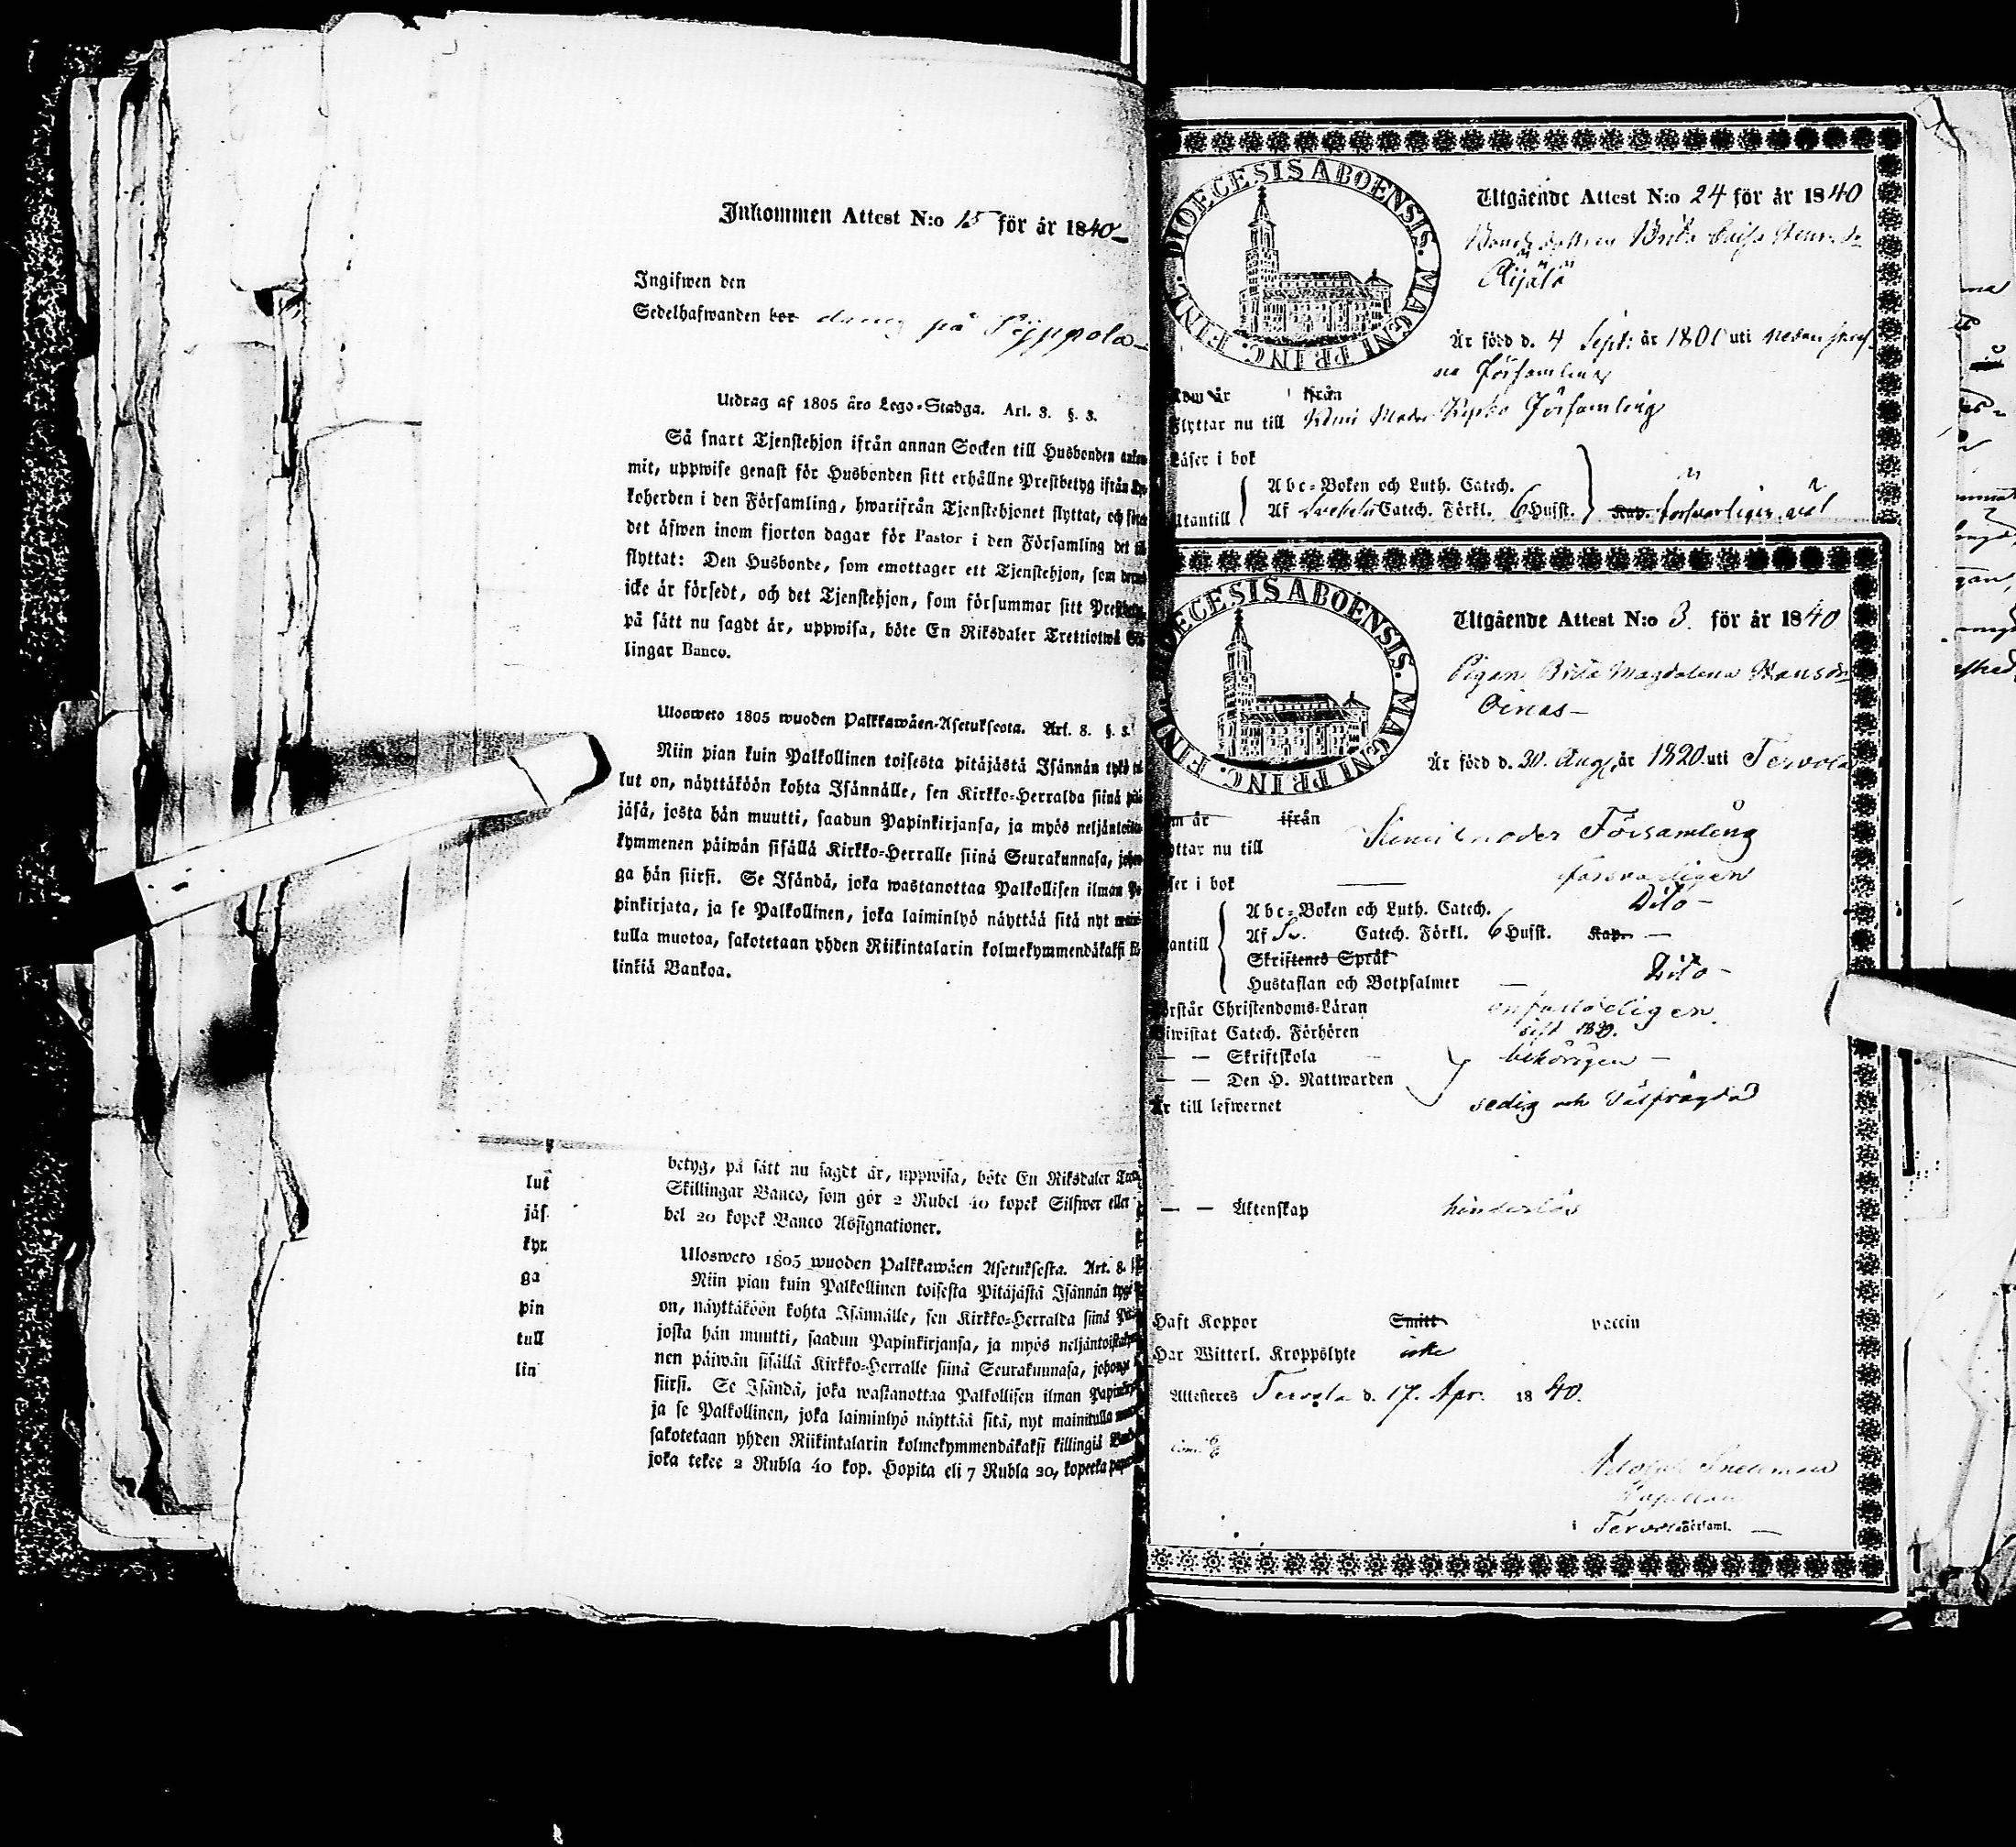 Inkommen Attest N:o 15 för år 1840
Ingifwen den
Sedelhafwanden bor på Pyppola
Utdrag af 1805 års Lego-Stadga. Art. 3. §. 3.
Så snart Tjenstehjon ifrån annan Socken till Husbonden
mit, uppwise genast för Husbonden sitt erhållne Prestbetyg ifrån
koherden i den Församling, hwarifrån Tjenstehjonet flyttat, och
det äfwen inom fjorton dagar för Pastor i den Församling det
flyttat: Den Husbonde, som emottager ett Tjenstehjon, som
icke är försedt, och det Tjenstehjon, som försummar sitt
på sätt nu sagdt är, uppwisa, böte En Riksdaler Trettiotwå
lingar Banco.
Ulosweto 1805 wuoden Palkkawäen-Asetuksesta. Art. 8. §. 3.
Niin pian kuin Palkollinen toisesta pitäjästä Isännän työ
lut on, näyttäköön kohta Isännälle, sen Kirkko-Herralda siinä
jäsä, josta hän muutti, saadun Papinkirjansa, ja myös
kymmenen päiwän sisällä Kirkko-Herralle siinä Seurakunnasa,
ga hän siirsi. Se Isändä, joka wastanottaa Palkollisen ilman
pinkirjata, ja se Palkollinen, joka laiminlyö näyttää sitä nyt
tulla muotoa, sakotetaan yhden Riikintalarin kolmekymmendäkaksi
linkiä Bankoa.
lut
jäs
kyr
ga
pin
tull
lin
betyg, på sätt nu sagdt är, uppwisa, böte En Riksdaler
Skillingar Banco, som gör 2 Rubel 40 kopek Silfwer eller
bel 20 kopek Banco Assignationer.
Ulosweto 1805 wuoden Palkkawäen Asetuksesta. Art. 8.
Niin pian kuin Palkollinen toisesta Pitäjästä Isännän
on, näyttäköön kohta Isännälle, sen Kirkko-Herralda siinä
josta hän muutti, saadun Papinkirjansa, ja myös
nen päiwän sisällä Kirkko-Herralle siinä Seurakunnasa,
siirsi. Se Isändä, joka wastanottaa Palkollisen ilman
ja se Palkollinen, joka laiminlyö näyttää sitä, nyt mainitulla
sakotetaan yhden Riikintalarin kolmekymmendäkaksi killingiä
joka tekee 2 Rubla 40 kop. Hopita eli 7 Rubla 20, kopeeka
DIOECESIS ABOENSIS. MAGNI PRINC. FINL.
Utgående Attest N:o 24 för år 1840
Brita Caisa
Är född d. 4 Sept: är 1801 uti
Församling
Kom år ifrån
Flyttar nu till Kemi Moder Kyrko Församling
Läser i bok
Abc-Boken och Luth. Catech.
Utantill Af Svebelii Catech. Förkl. 6 Husst. Kap. försvarligen väl
DIOECESIS ABOENSIS. MAGNI PRINC. FINL.
Utgående Attest N:o 3. för år 1840
Pigan Brita Magdalena Hansdr
Oinas
Är född d. 30. Aug. är 1820. uti Tervola
Kom år ifrån
nu till Kemi moder Församling
i bok försvarligen
Abc-Boken och Luth. Catech. Dito
Af Sv. Catech. Förkl. 6 Husst. Kap.
Skriftenes Språk
Hustaflan och Botpsalmer Dito
Christendoms-Läran enfaldeligen.
Catech. Förhören sist 1839.
— — Skriftskola behörigen
— — Den H. Nattwarden
Är till lefwernet sedig och välfrägdad
— — Äktenskap hinderlös
Haft Koppor Smitt vaccin
Har Witterl. Kroppslyte icke
Attesteres Tervola d. 17. Apr. 1840.
Adolph Snellman
Kapellan
i Tervola Församl.